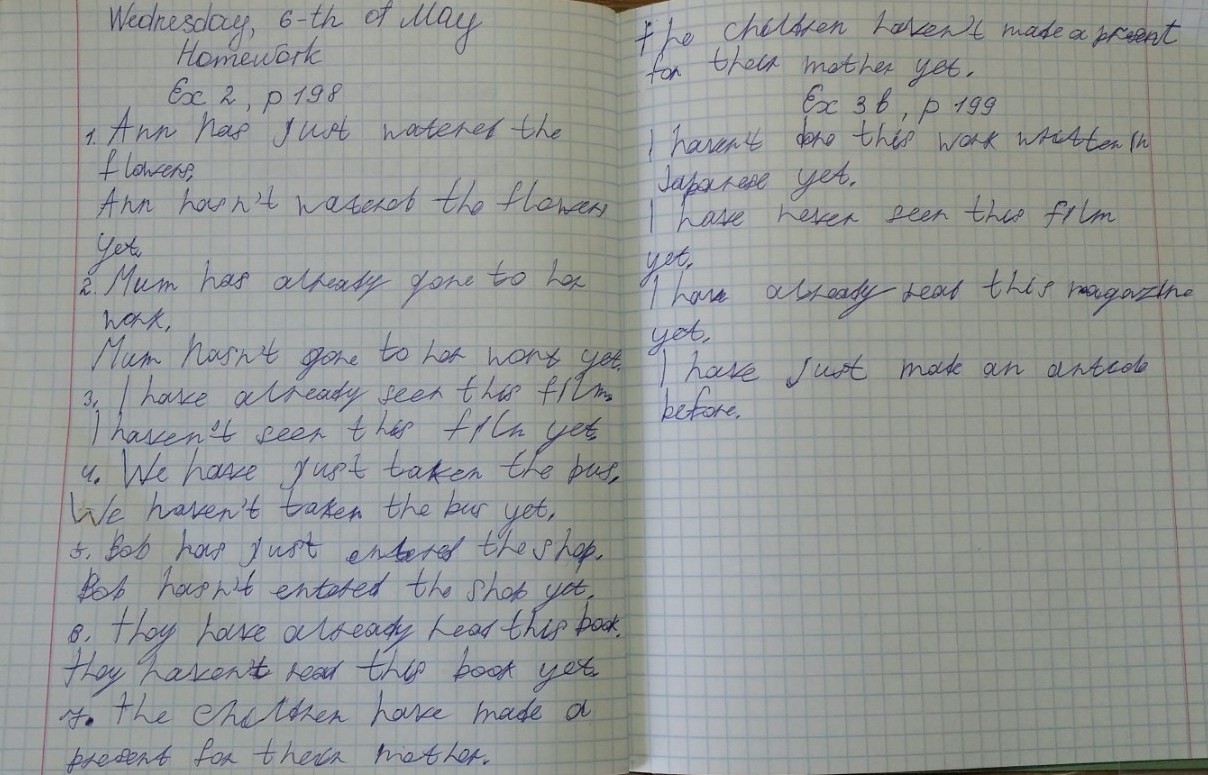 Wednesday, 6-th of May
Homework
Ex 2, p 198
1. Ann has just watered the
flowers.
Ann hasn't watered the flowers
yet.
2. Mum has already gone to her
work.
Mum hasn't gone to her work yet.
3. I have already seen this film.
I haven't seen this film yet
4. We have just taken the bus.
We haven't taken the bus yet.
5. Bob has just entered the shop.
Bob hasn't entered the shop yet.
6. They have already read this book.
They haven't read this book yet.
7. The children have made a
present for their mother.
The children haven't made a present
for their mother yet.
Ex 3b, p 199
I haven't done this work written in
Japanese yet.
I have never seen this film
yet.
I have already read this magazine
yet.
I have just made an
before.